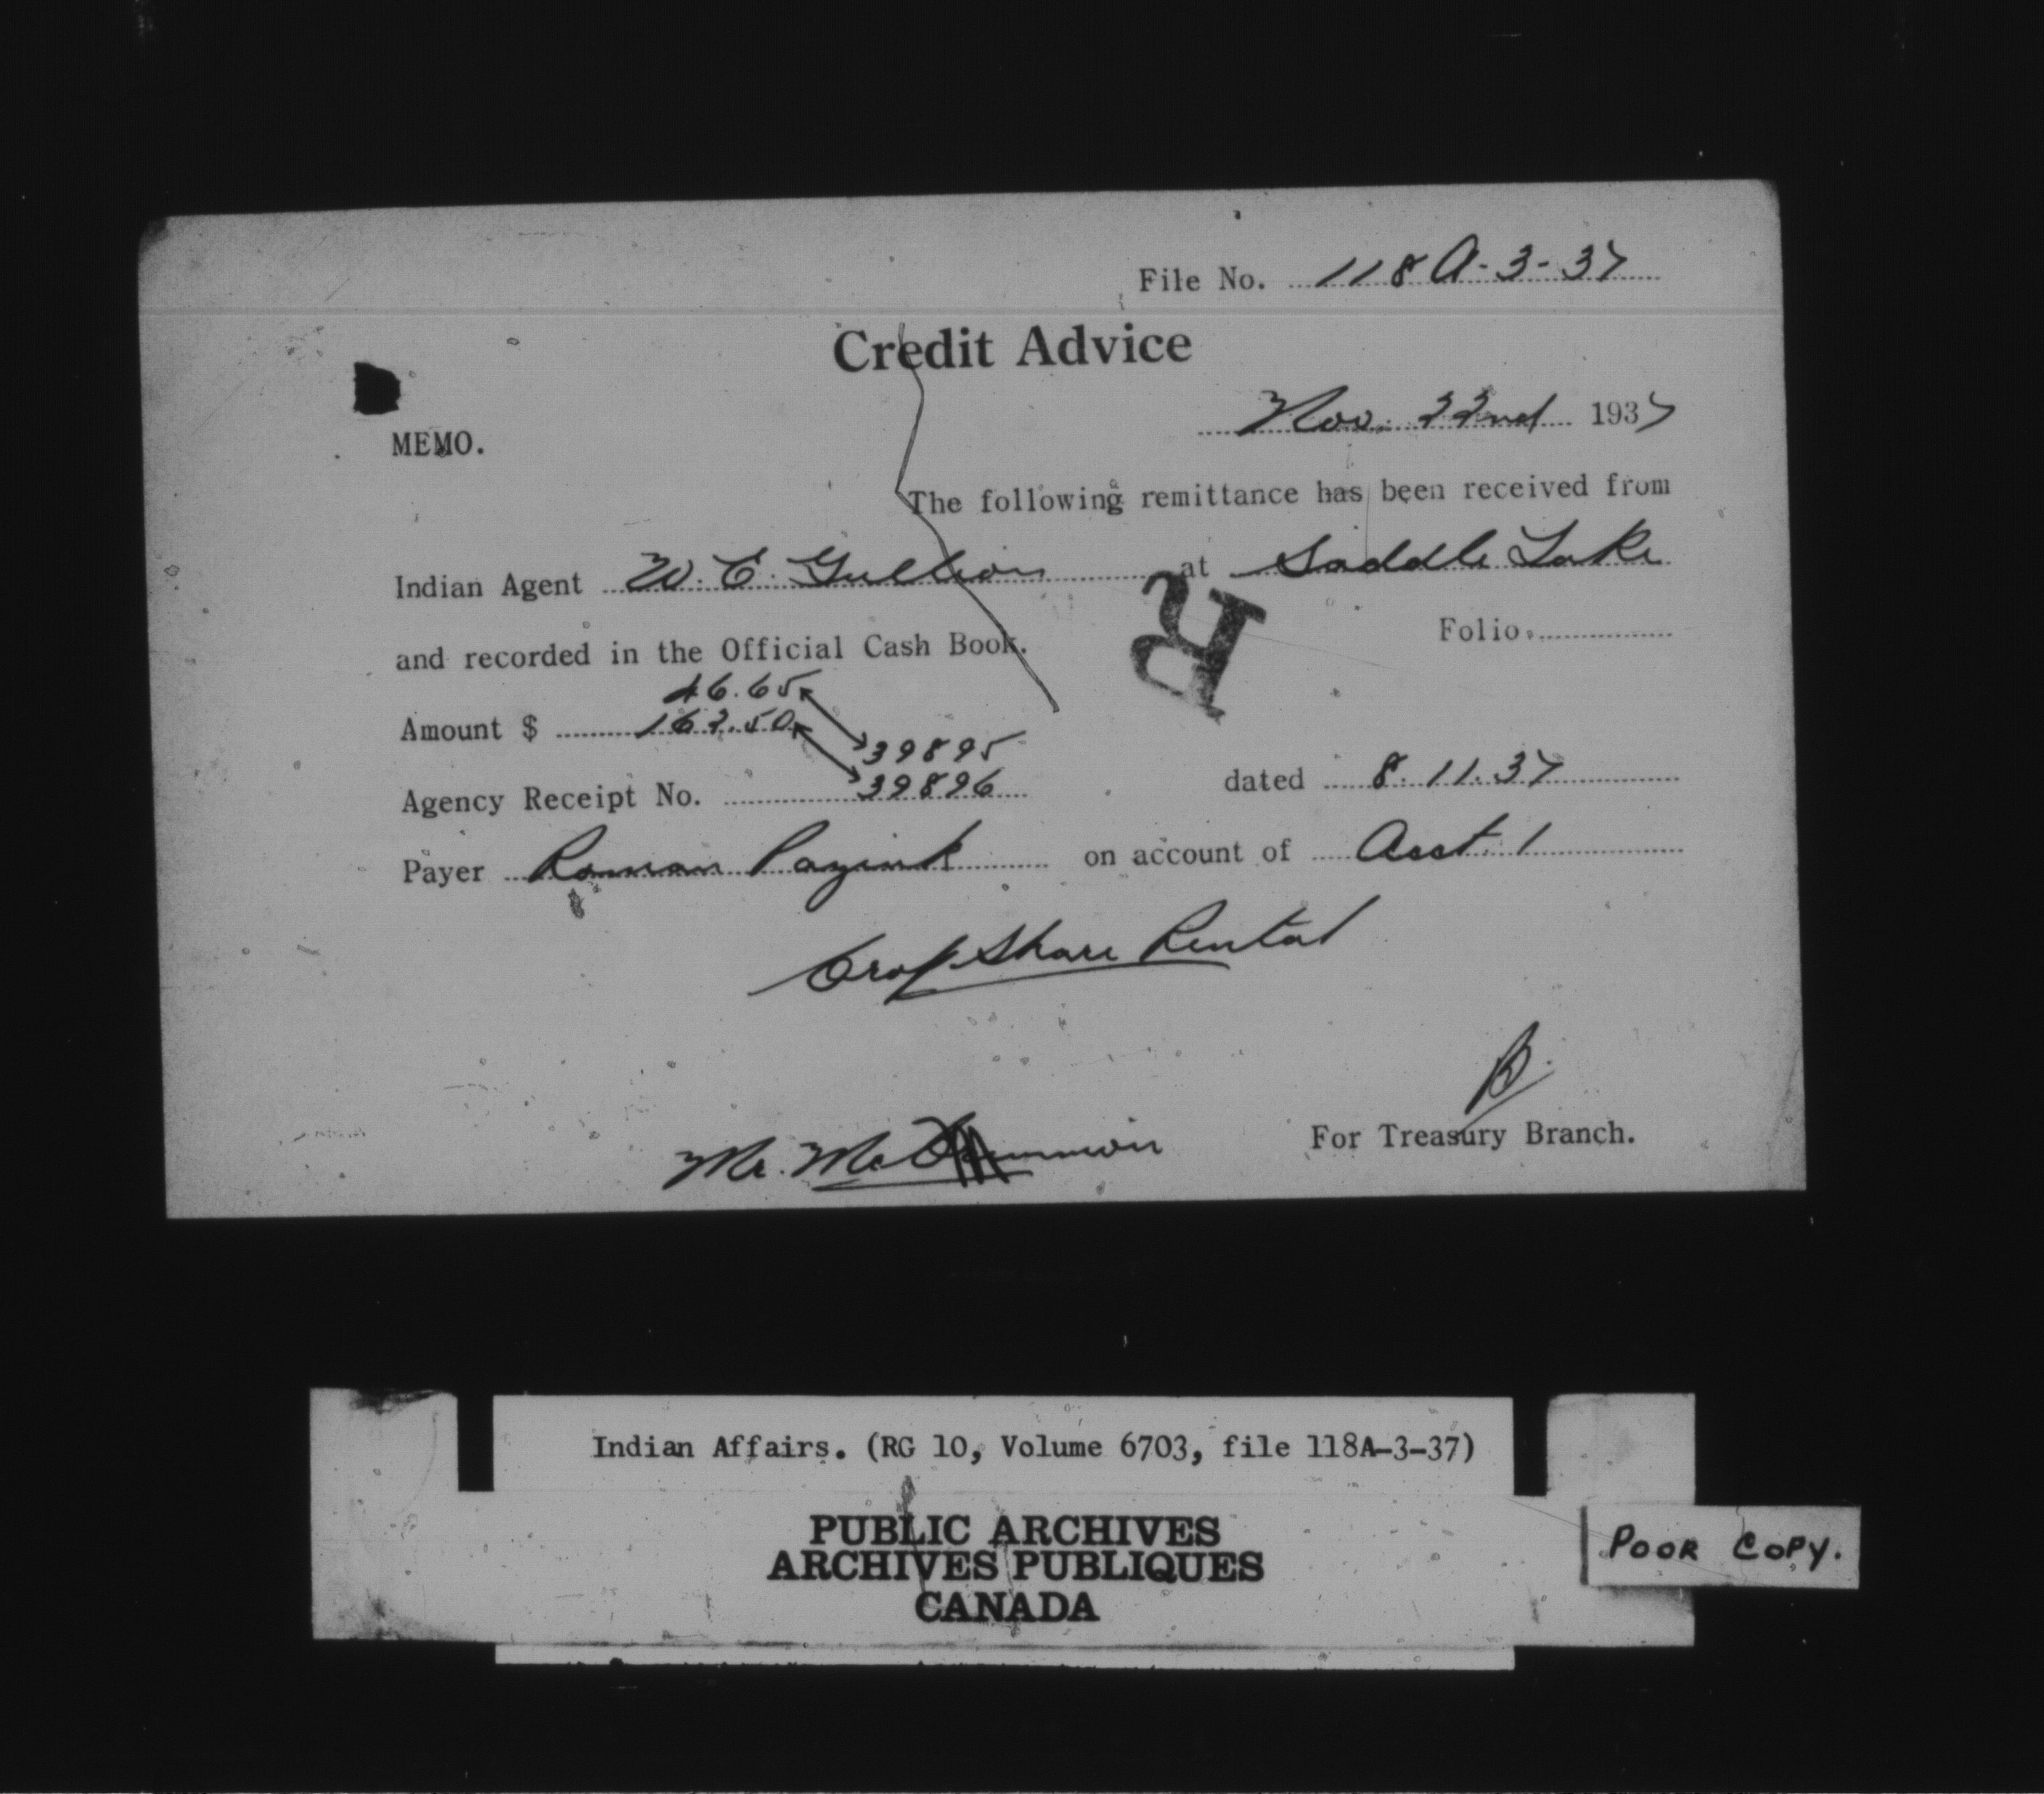 File No. 118A-3-37
Credit Advice
Nov. 22nd 1937
MEMO.
The following remittance has been received from
Indian Agent W. E. Gullion at Saddle Lake
R
and recorded in the Official Cash Book. Folio
46.65
Amount $ 162.50
39895
Agency Receipt No. 39896 dated 8.11.37
Payer Roman on account of Asst. 1
Crop Share Rental
B.
Mr. For Treasury Branch.
Indian Affairs. (RG 10, Volume 6703, file 118A-3-37)
PUBLIC ARCHIVES
ARCHIVES PUBLIQUES
CANADA
POOR COPY.